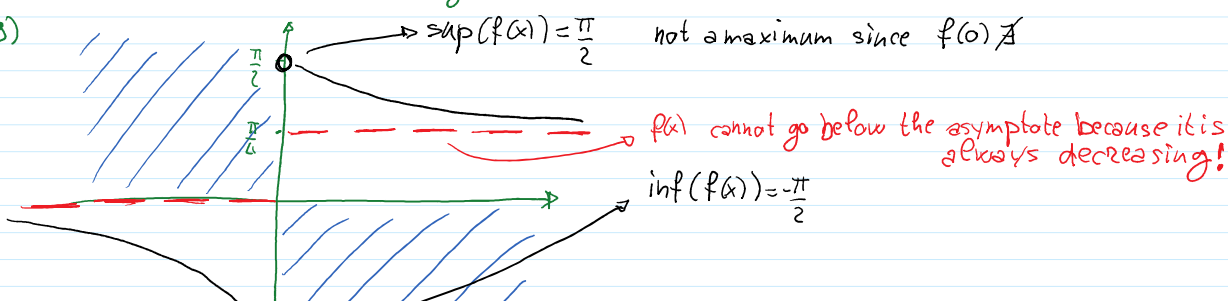 3)
sup(f(x)) = π/2 not a maximum since f(0) ∄
π/2
π/4
f(x) cannot go below the asymptote because it is
always decreasing!
inf(f(x)) = -π/2